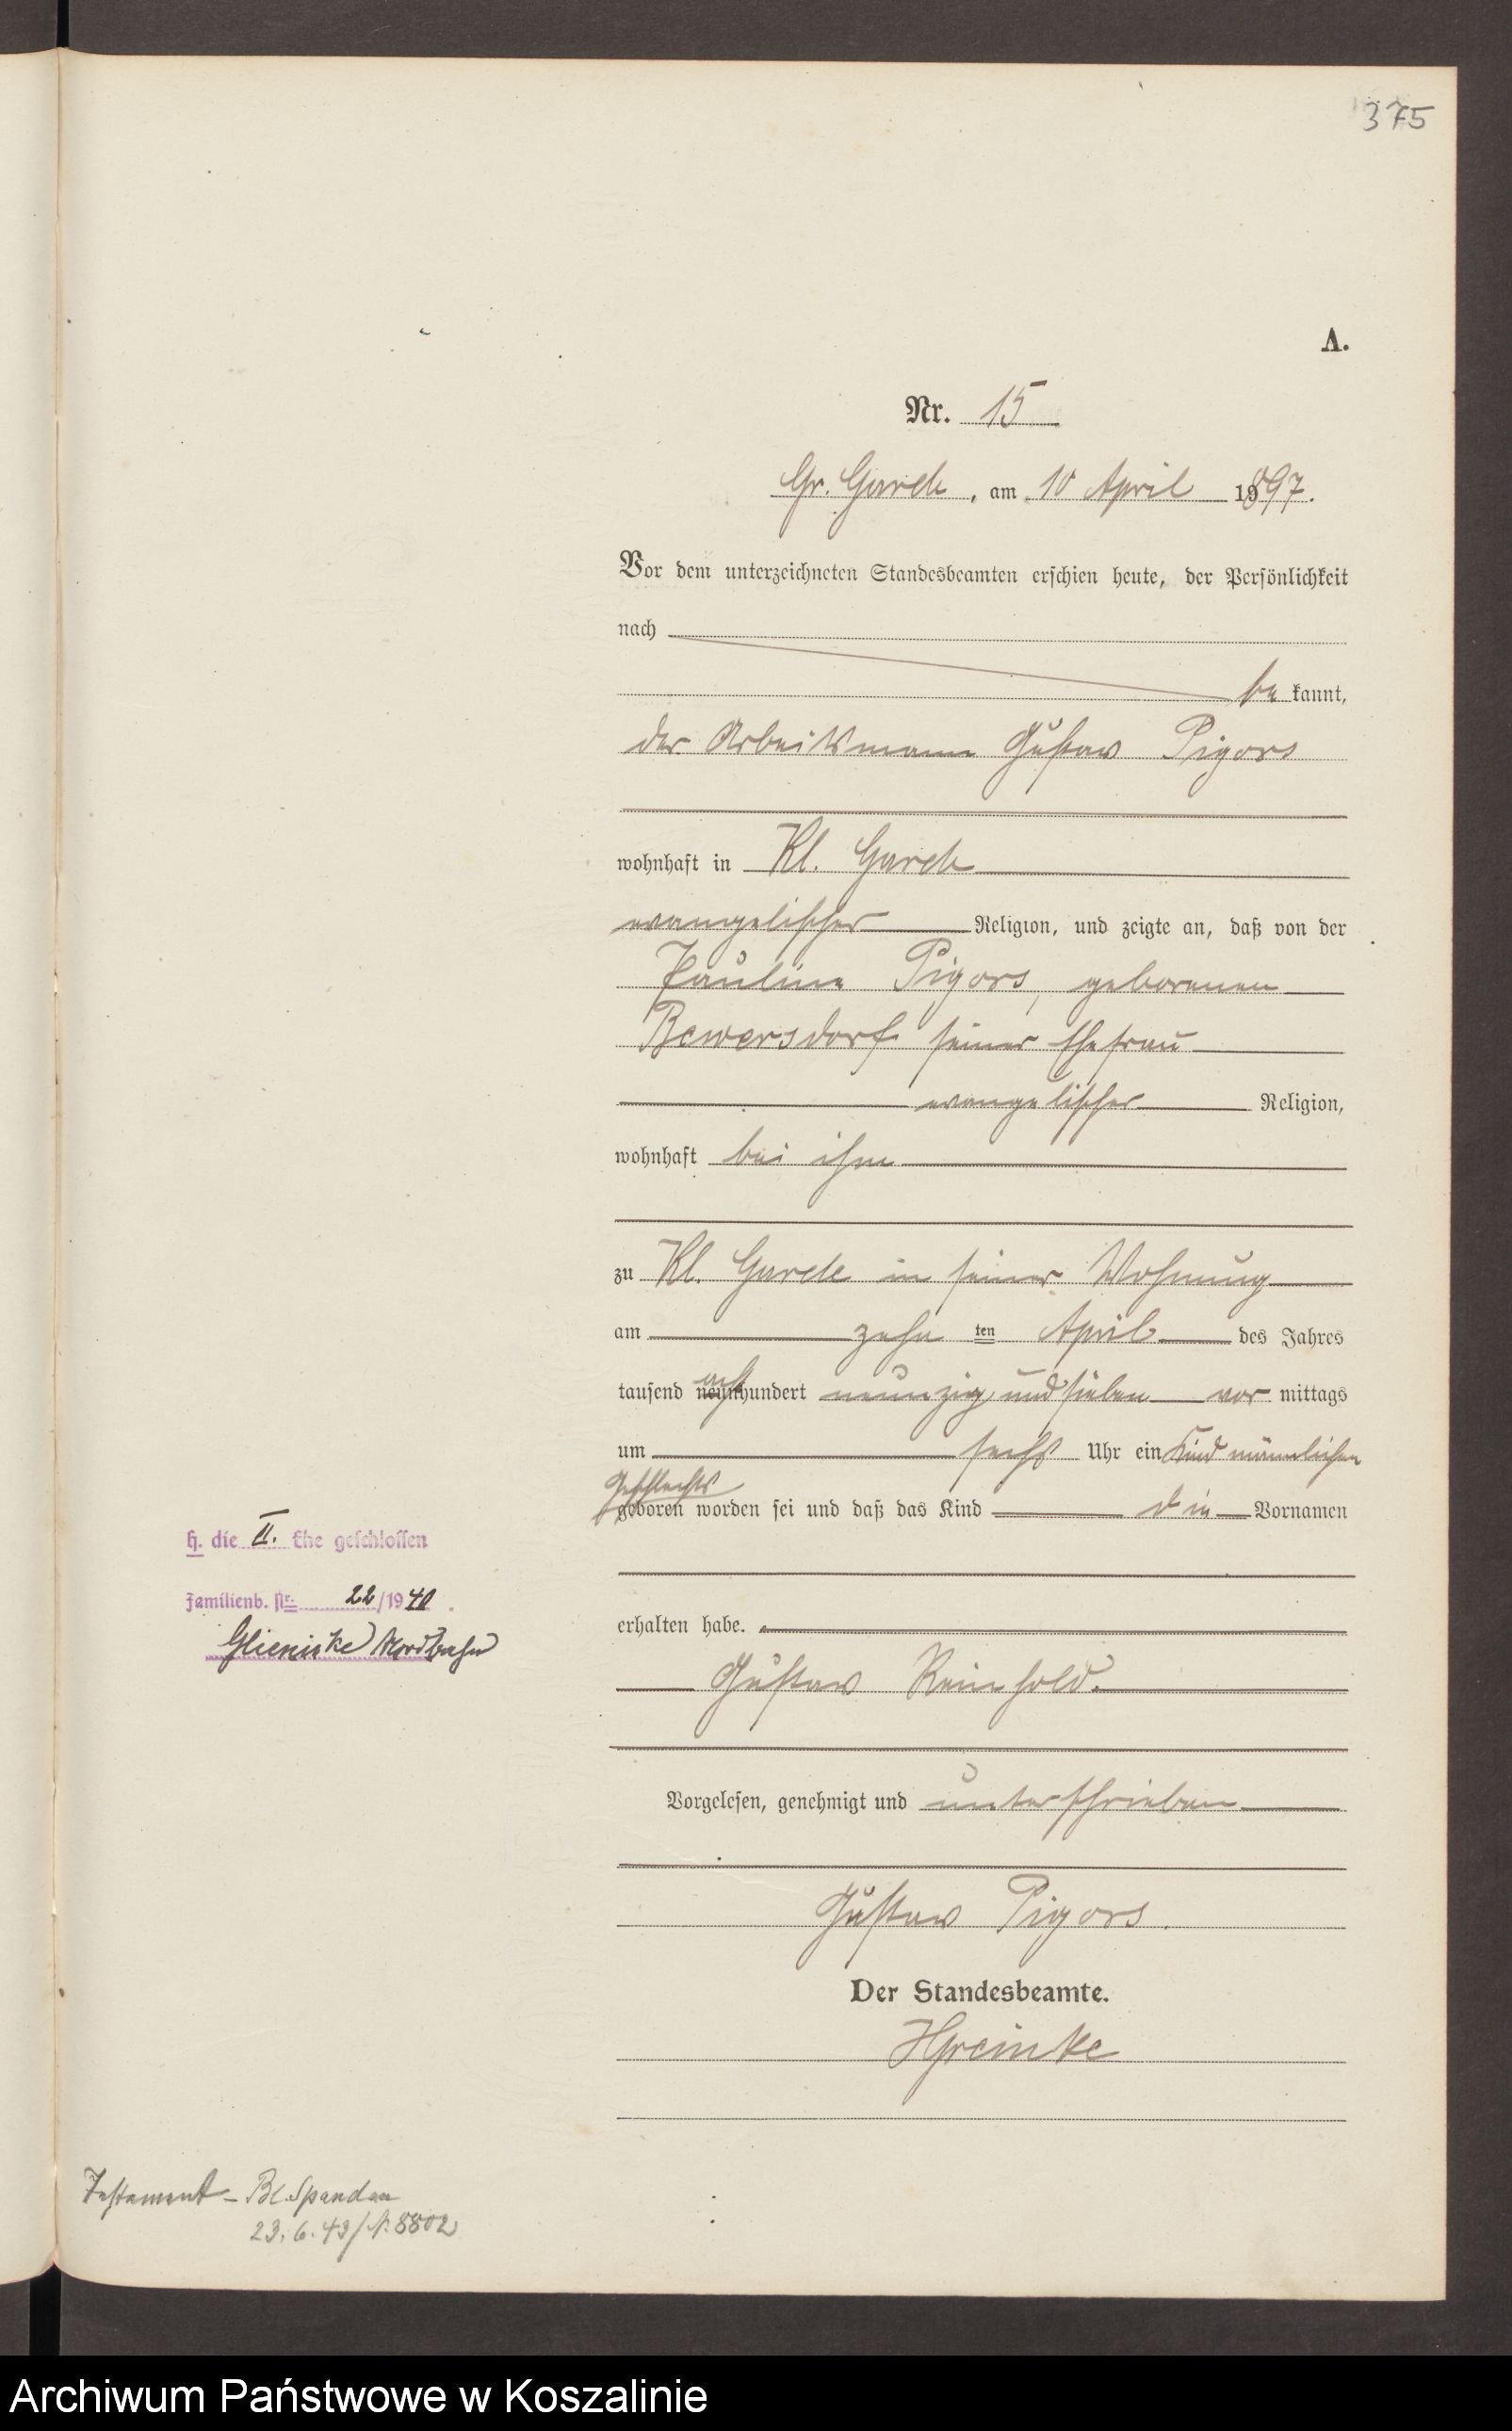 375
A.
Nr. 15
Gr. Garde, am 10 April 1897.
Vor dem unterzeichneten Standesbeamten erschien heute, der Persönlichkeit
nach
be kannt,
der Arbeitsmann Gustav Pigors
wohnhaft in Kl. Garde
evangelischer Religion, und zeigte an, daß von der
Pauline Pigors, geborenen
Bewersdorf seiner Ehefrau
evangelischer Religion,
wohnhaft bei ihm
zu Kl. Garde in seiner Wohnung
am zehn ten April des Jahres
tausend neunhundert acht neunzig und sieben vor mittags
um sechs Uhr ein Kind männlichen
Geschlechts
geboren worden sei und daß das Kind die Vornamen
erhalten habe.
Gustav Reinhold.
Vorgelesen, genehmigt und unterschrieben
Gustav Pigors.
Der Standesbeamte.
HGreinke
H. die II. Ehe geschlossen
Familienb. Nr. 22/1940.
Glienicke Nordbahn
Testament - Bl. Spandau
23.6.43/N. 8802
Archiwum Państwowe w Koszalinie